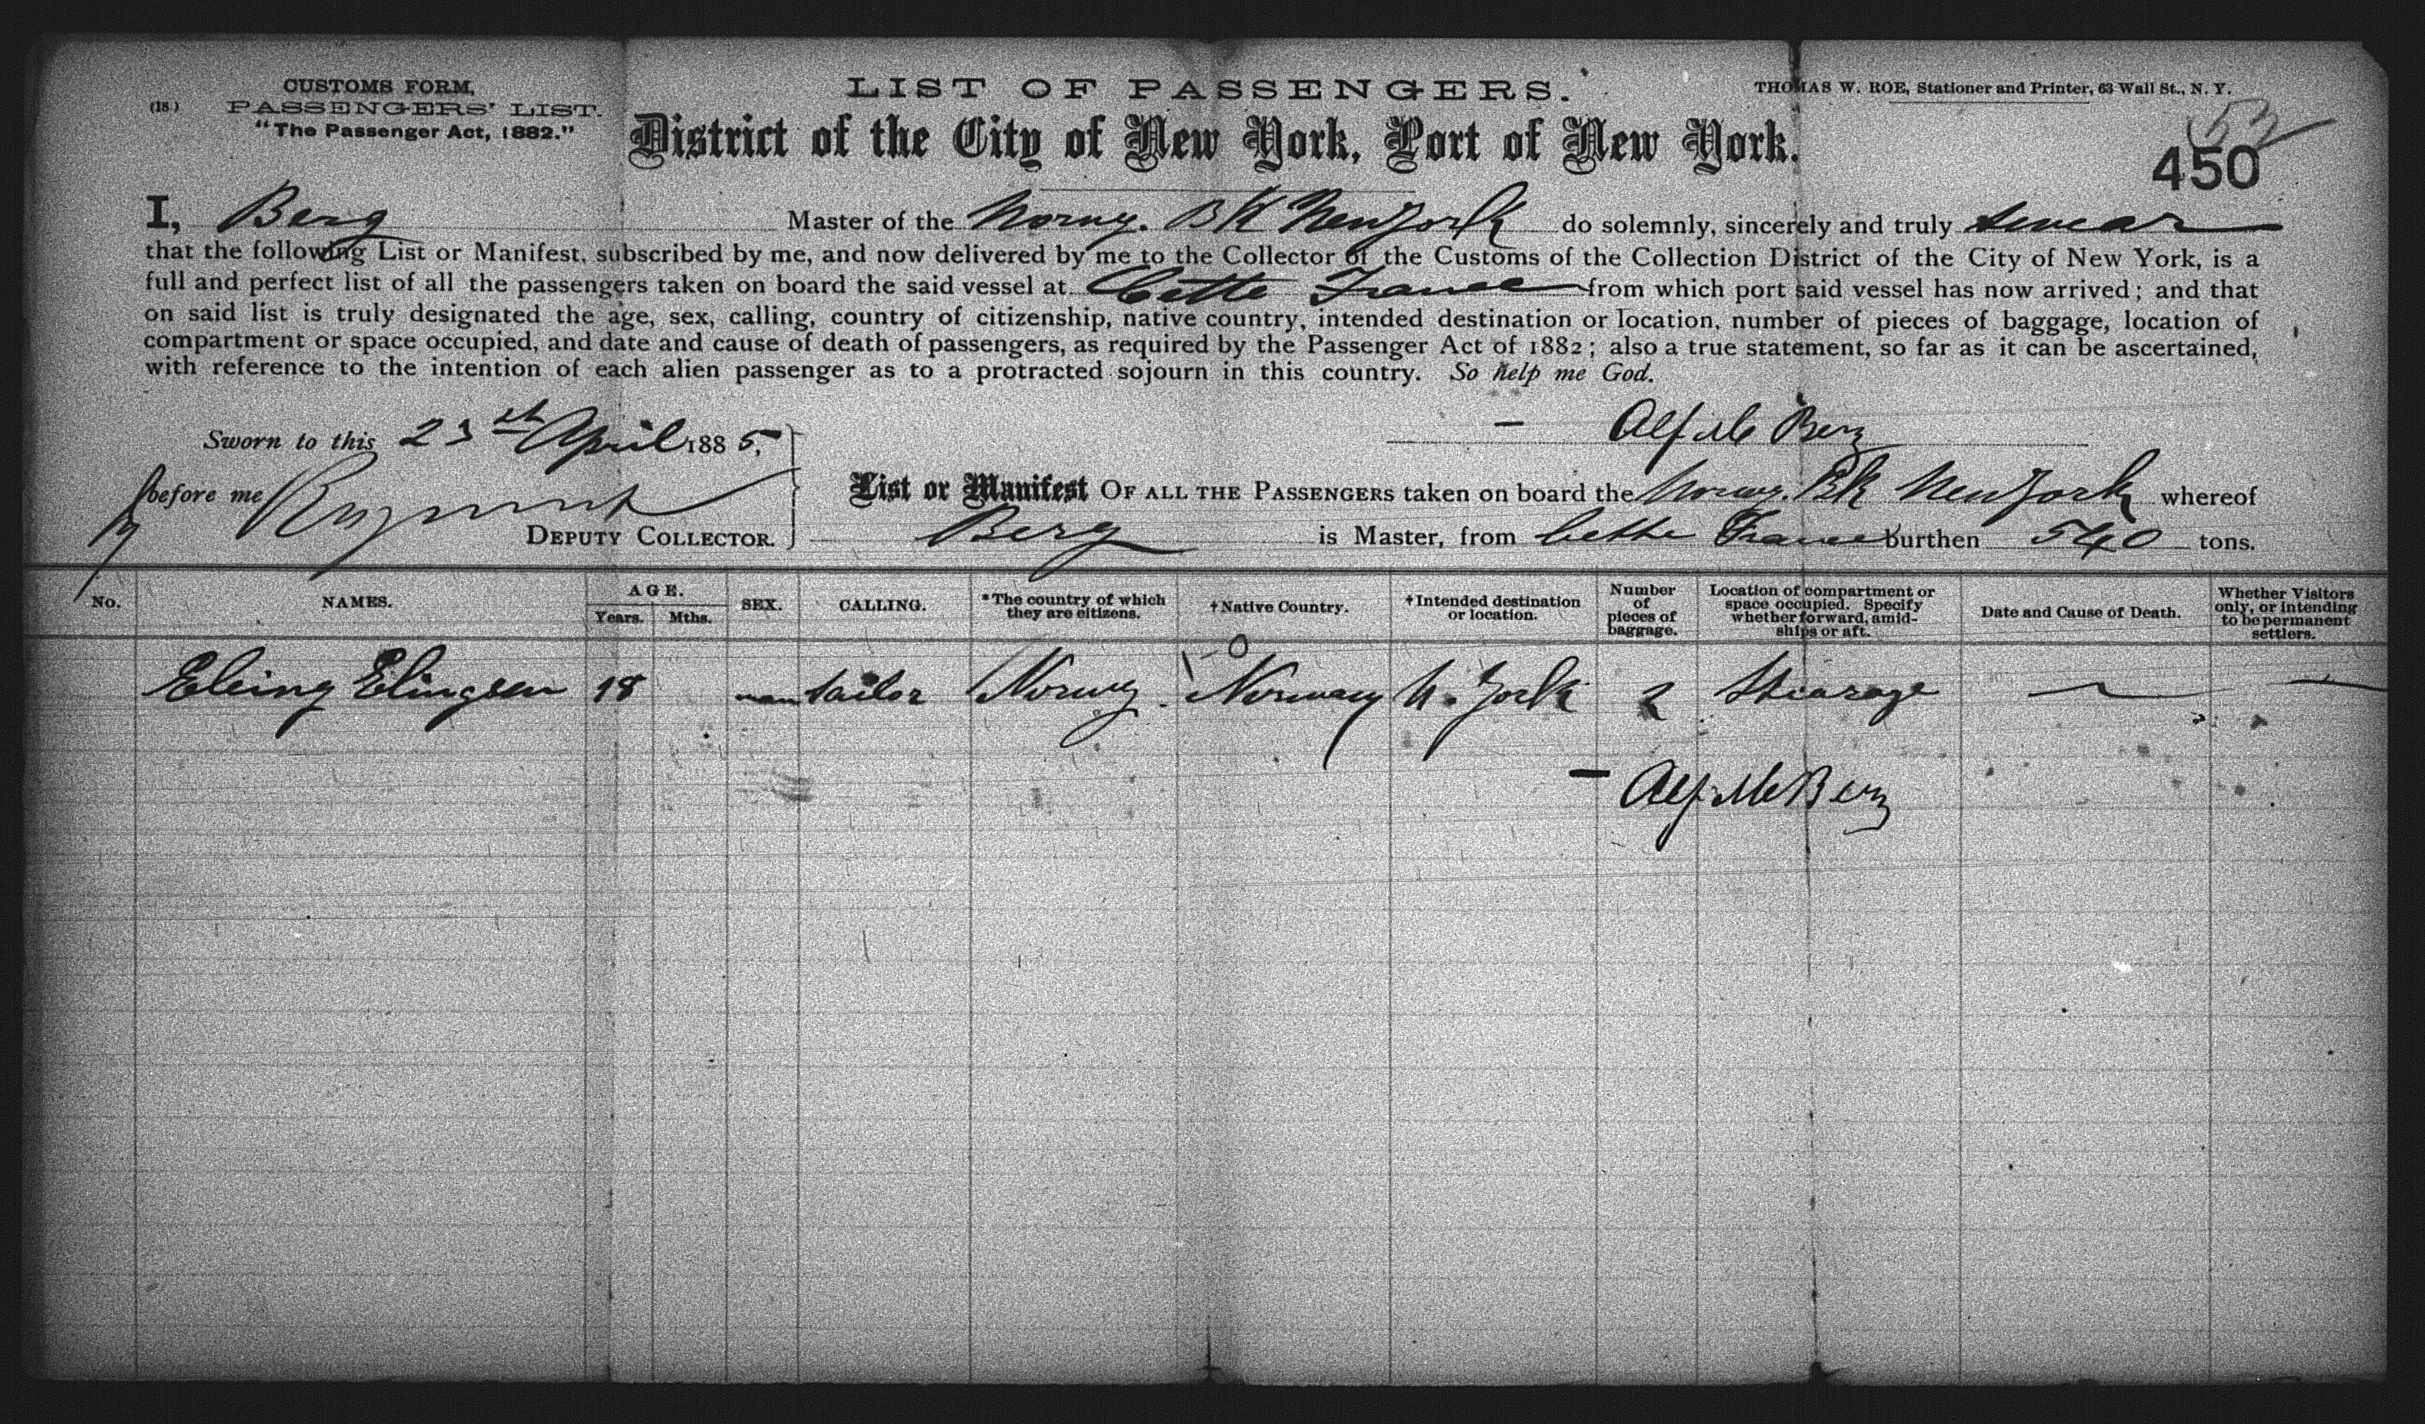 CUSTOMS FORM,
(18) PASSENGERS' LIST.
"The Passenger Act, 1882."
LIST OF PASSENGERS.
District of the City of New York, Port of New York.
THOMAS W. ROE, Stationer and Printer, 63 Wall St., N. Y.
53
450
I, Berg Master of the Norwg. BK New York do solemnly, sincerely and truly swear
that the following List or Manifest, subscribed by me, and now delivered by me to the Collector of the Customs of the Collection District of the City of New York, is a
full and perfect list of all the passengers taken on board the said vessel at Cette France from which port said vessel has now arrived; and that
on said list is truly designated the age, sex, calling, country of citizenship, native country, intended destination or location, number of pieces of baggage, location of
compartment or space occupied, and date and cause of death of passengers, as required by the Passenger Act of 1882; also a true statement, so far as it can be ascertained,
with reference to the intention of each alien passenger as to a protracted sojourn in this country. So help me God.
Sworn to this 23 April 1885,
Alf Berg
before me
DEPUTY COLLECTOR.
List or Manifest OF ALL THE PASSENGERS taken on board the Norwg. BK New York whereof
Berg is Master, from Cette France burthen 540 tons.
No. NAMES. AGE. Years. Mths. SEX. CALLING. *The country of which they are citizens. †Native Country. †Intended destination or location. Number of pieces of baggage. Location of compartment or space occupied. Specify whether forward, amidships or aft. Date and Cause of Death. Whether Visitors only, or intending to be permanent settlers.
Elling Elingsen 18 man sailor Norwg. Norway N. York 2 Stearage
Alf Berg